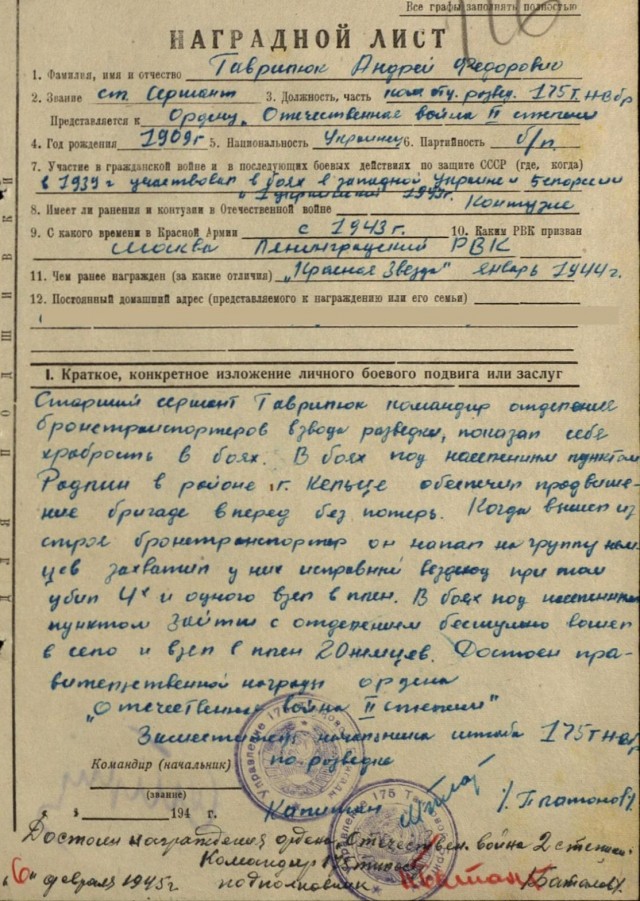 Все графы заполнять полностью
НАГРАДНОЙ ЛИСТ
1. Фамилия, имя и отчество Гаврилюк Андрей Федорович
2. Звание ст. Сержант 3. Должность, часть ком. отд. развед. 175 Т.Н-в бр
Представляется к Ордену „Отечественная война II степени
4. Год рождения 1909г 5. Национальность Украинец 6. Партийность б/п
7. Участие в гражданской войне и в последующих боевых действиях по защите СССР (где, когда)
в 1939 г участвовал в боях в западной Украине и Белорусии
1943г.
8. Имеет ли ранения и контузии в Отечественной войне Контузию
9. С какого времени в Красной Армии с 1943 г. 10. Каким РВК призван
Москва Ленинградский РВК
11. Чем ранее награжден (за какие отличия) „Красная Звезда" январь 1944 г.
12. Постоянный домашний адрес (представляемого к награждению или его семьи)
I. Краткое, конкретное изложение личного боевого подвига или заслуг
Старший сержант Гаврилюк командир отделение
бронетранспортеров взвода разведки, показал себя
храбрость в боях. В боях под населенним пунктом
Радлин в районе г. Кельце обеспечил продвиже-
ние бригаде вперед без потерь. Когда вышел из
строя бронетранспортер он напал на группу нем-
цев захватил у них исправний вездеход при том
убил 4х и одного взел в плен. В боях под населенним
пунктом Зейтш с отделением бесшумно вошел
в село и взел в плен 20 немцев. Достоен пра-
вительственной награды ордена
„Отечественная война II степени"
Заместитель начальника штаба 175 Т Н-в бр
Командир (начальник) по разведке
(звание)
" " 194 г. Капитан /Платонов/
Достоен награждения ордена Отечествен. война 2 степени.
Командир
"6" февраля 1945г подполковник
Управление 175 Танковой бригады